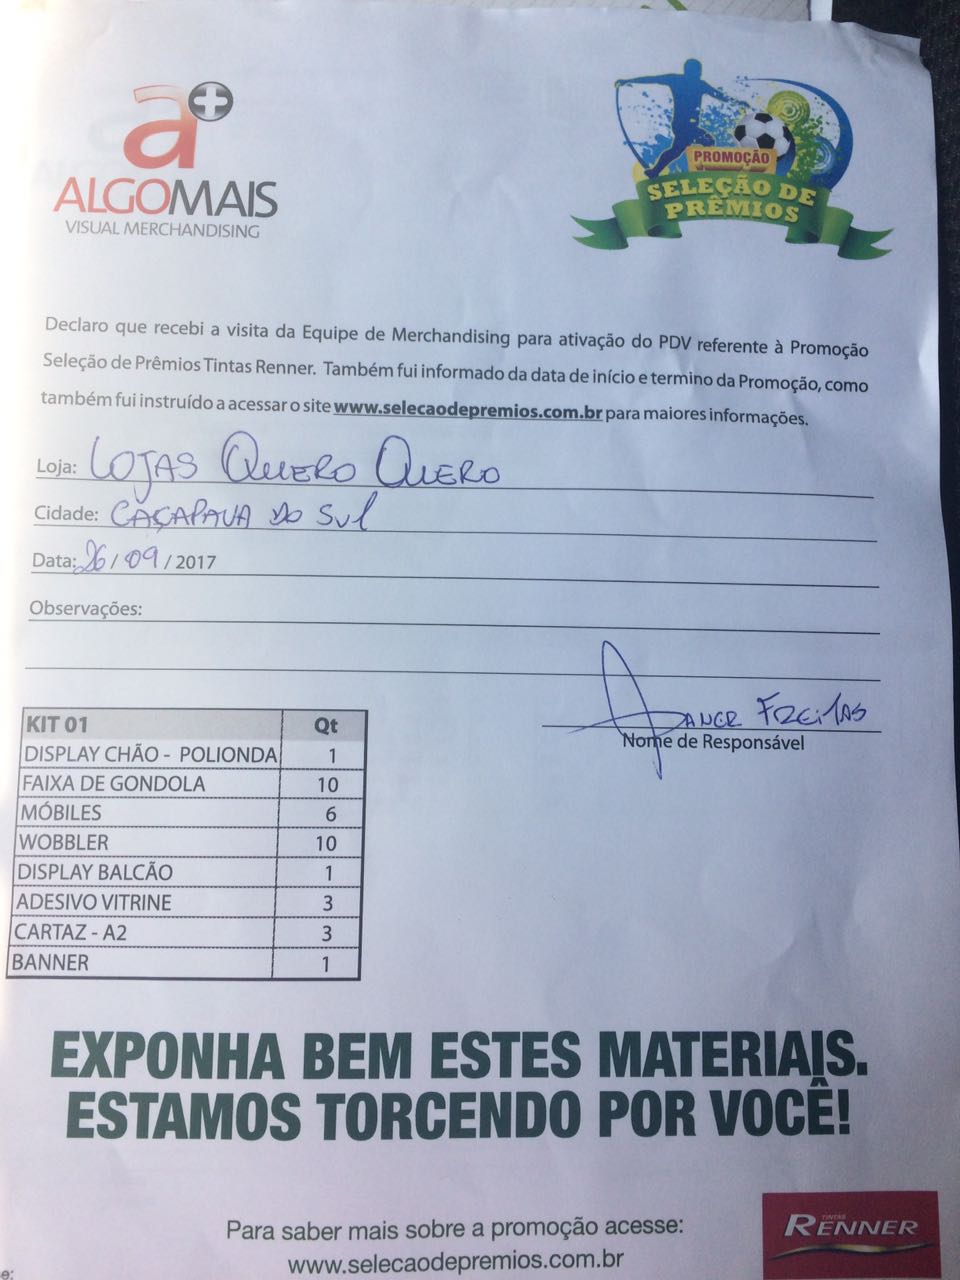 a+
ALGOMAIS
VISUAL MERCHANDISING
PROMOÇÃO
SELEÇÃO DE
PRÊMIOS
Declaro que recebi a visita da Equipe de Merchandising para ativação do PDV referente à Promoção
Seleção de Prêmios Tintas Renner. Também fui informado da data de início e termino da Promoção, como
também fui instruído a acessar o site www.selecaodepremios.com.br para maiores informações.
Loja: LOJAS QUERO QUERO
Cidade: CAÇAPAVA DO SUL
Data: 26 / 09 / 2017
Observações:
FREITAS
Nome de Responsável
KIT 01 Qt
DISPLAY CHÃO - POLIONDA 1
FAIXA DE GONDOLA 10
MÓBILES 6
WOBBLER 10
DISPLAY BALCÃO 1
ADESIVO VITRINE 3
CARTAZ - A2 3
BANNER 1
EXPONHA BEM ESTES MATERIAIS.
ESTAMOS TORCENDO POR VOCÊ!
Para saber mais sobre a promoção acesse:
www.selecaodepremios.com.br
TINTAS
RENNER